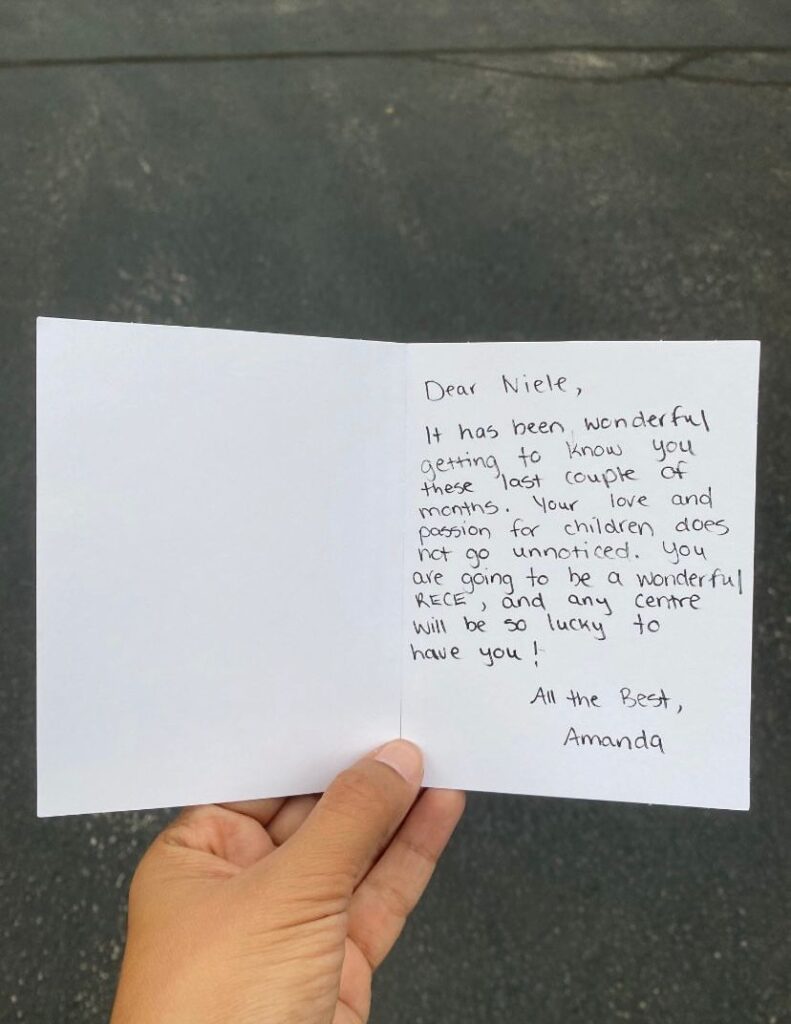 Dear Niele,
It has been wonderful
getting to know you
these last couple of
months. Your love and
passion for children does
not go unnoticed. You
are going to be a wonderful
RECE, and any centre
will be so lucky to
have you!
All the Best,
Amanda